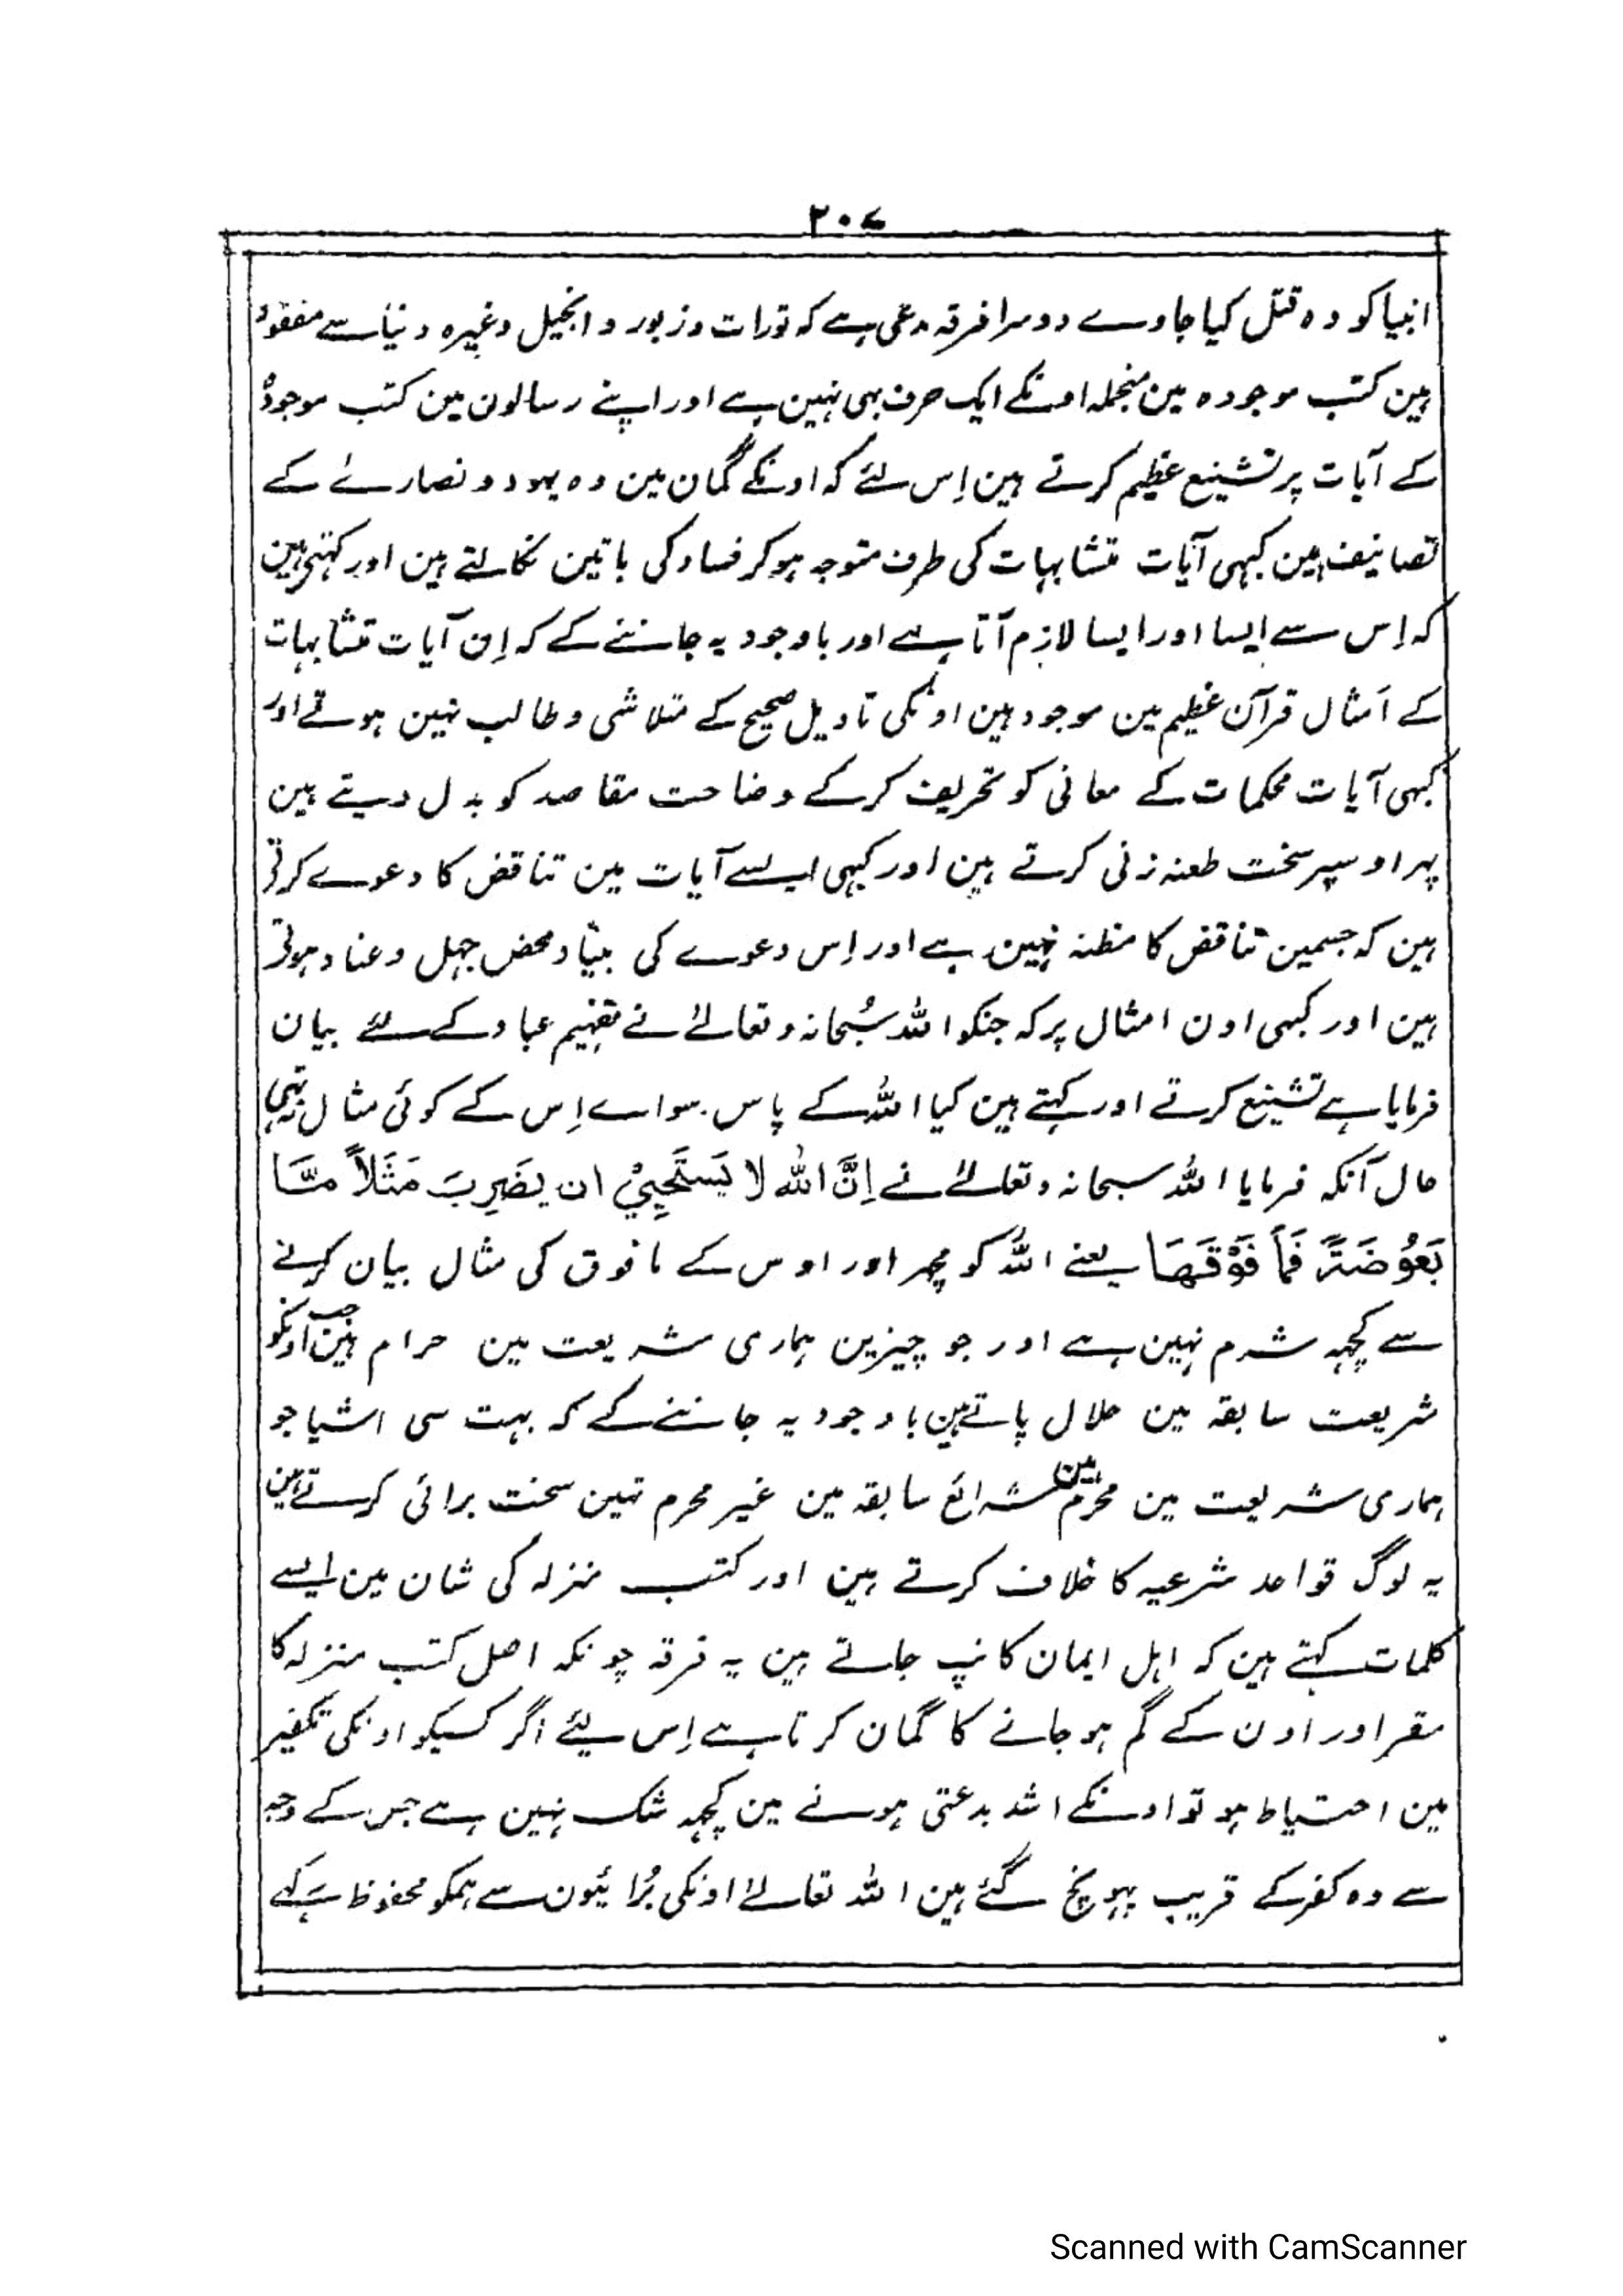 ۲۰۷
انبیا کو وہ قتل کیا جاوے دوسرا فرقہ مدعی ہے کہ تورات و زبور و انجیل وغیرہ دنیا سے مفقود
ہین کتب موجودہ مین منجملہ اونکے ایک حرف بہی نہین ہے اور اپنے رسالون مین کتب موجودہ
کے آیات پر تشینع عظیم کرتے ہین اِس لئے کہ اونکے گمان مین وہ یہود و نصارےٰ کے
تصانیف ہین کبہی آیات متشابہات کی طرف متوجہ ہوکر فساد کی باتین نکالتے ہین اور کہتے ہین
کہ اِس سے ایسا اور ایسا لازم آتا ہے اور باوجود یہ جاننے کے کہ اِن آیات متشابہات
کے اَمثال قرآن عظیم مین موجود ہین اونکی تاویل صحیح کے متلاشی و طالب نہین ہوتے اور
کبہی آیات محکمات کے معانی کو تحریف کرکے وضاحت مقاصد کو بدل دیتے ہین
پہر اوسپر سخت طعنہ زنی کرتے ہین اور کبہی ایسے آیات مین تناقض کا دعوے کرتے
ہین کہ جسمین تناقض کا مظنہ نہین ہے اور اِس دعوے کی بنیاد محض جہل و عناد ہوتی
ہین اور کبہی اون امثال پر کہ جنکو اللہ سُبحانہ و تعالےٰ نے تفہیم عباد کے لئے بیان
فرمایا ہے تشینع کرتے اور کہتے ہین کیا اللہ کے پاس سواے اِس کے کوئی مثال نہ تہی
حال آنکہ فرمایا اللہ سبحانہ و تعالےٰ نے اِنَّ اللّٰه لا يَسْتَحْيِيْ ان يضَرِبَ مَثَلاً مَّا
بَعُوْضَةً فَمَا فَوْقَهَا یعنے اللہ کو مچہر اور اوس کے مافوق کی مثال بیان کرنے
سے کچہہ شرم نہین ہے اور جو چیزین ہماری شریعت مین حرام ہین جب اونکو
شریعت سابقہ مین حلال پاتے ہین باوجود یہ جاننے کے کہ بہت سی اشیا جو
ہماری شریعت مین محرم ہین شرائع سابقہ مین غیر محرم تہین سخت برائی کرتے ہین
یہ لوگ قواعد شرعیہ کا خلاف کرتے ہین اور کتب منزلہ کی شان مین ایسے
کلمات کہتے ہین کہ اہل ایمان کانپ جاتے ہین یہ فرقہ چونکہ اصل کتب منزلہ کا
مقر اور اون کے گم ہوجانے کا گمان کرتا ہے اِس لیئے اگر کسیکو اونکی تکفیر
مین احتیاط ہو تو اونکے اشد بدعتی ہونے مین کچہہ شک نہین ہے جس کے وجہ
سے وہ کفر کے قریب پہونچ گئے ہین اللہ تعالےٰ اونکی بُرائیون سے ہمکو محفوظ رکہے
Scanned with CamScanner